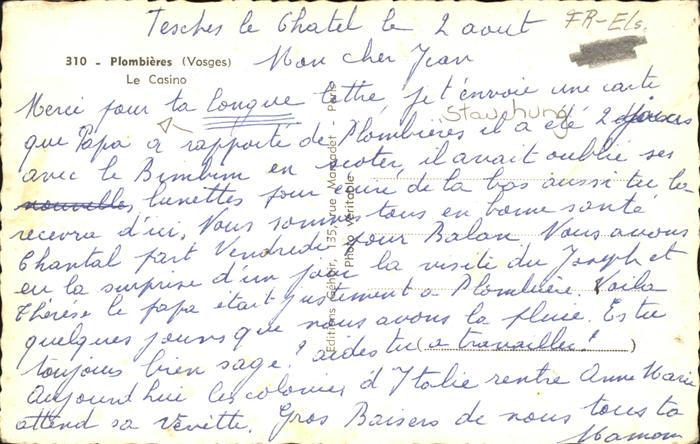 Tesches le Chatel le 2 aout
FR-Els.
310 - Plombières (Vosges)
Le Casino
Mon cher Jean
Merci pour ta longue lettre, je t'envoie une carte
Stauchung
que Papa a rapporté de Plombières il a été 2 jours
avec le Bimbim en scoter, il avait oublié ses
nouvelles lunettes pour écrire de la bas aussi tu la
recevra d'ici. Vous sommes tous en bonne santé
Chantal part Vendredi pour Balan. Nous avons
eu la surprise d'un jour la visite du Joseph et
Thérèse le papa était justement a Plombière. Voila
quelques jours que nous avons la pluie. Es tu
toujours bien sage? aides tu (a travailler?)
Aujourd'hui les colonies d'Italie rentre Anne Marie
attend sa Venette. Gros Baisers de nous tous ta
Maman
Editions Géhoir, 135, rue Marcadet - Paris
Photo Véritable